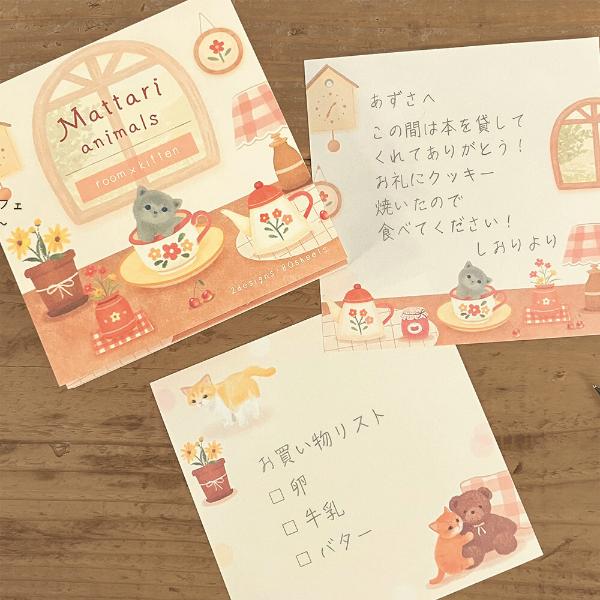 Mattari
animals
room×kitten
2designs・80sheets
フェ
～
あずさへ
この間は本を貸して
くれてありがとう！
お礼にクッキー
焼いたので
食べてください！
しおりより
お買い物リスト
□卵
□牛乳
□バター